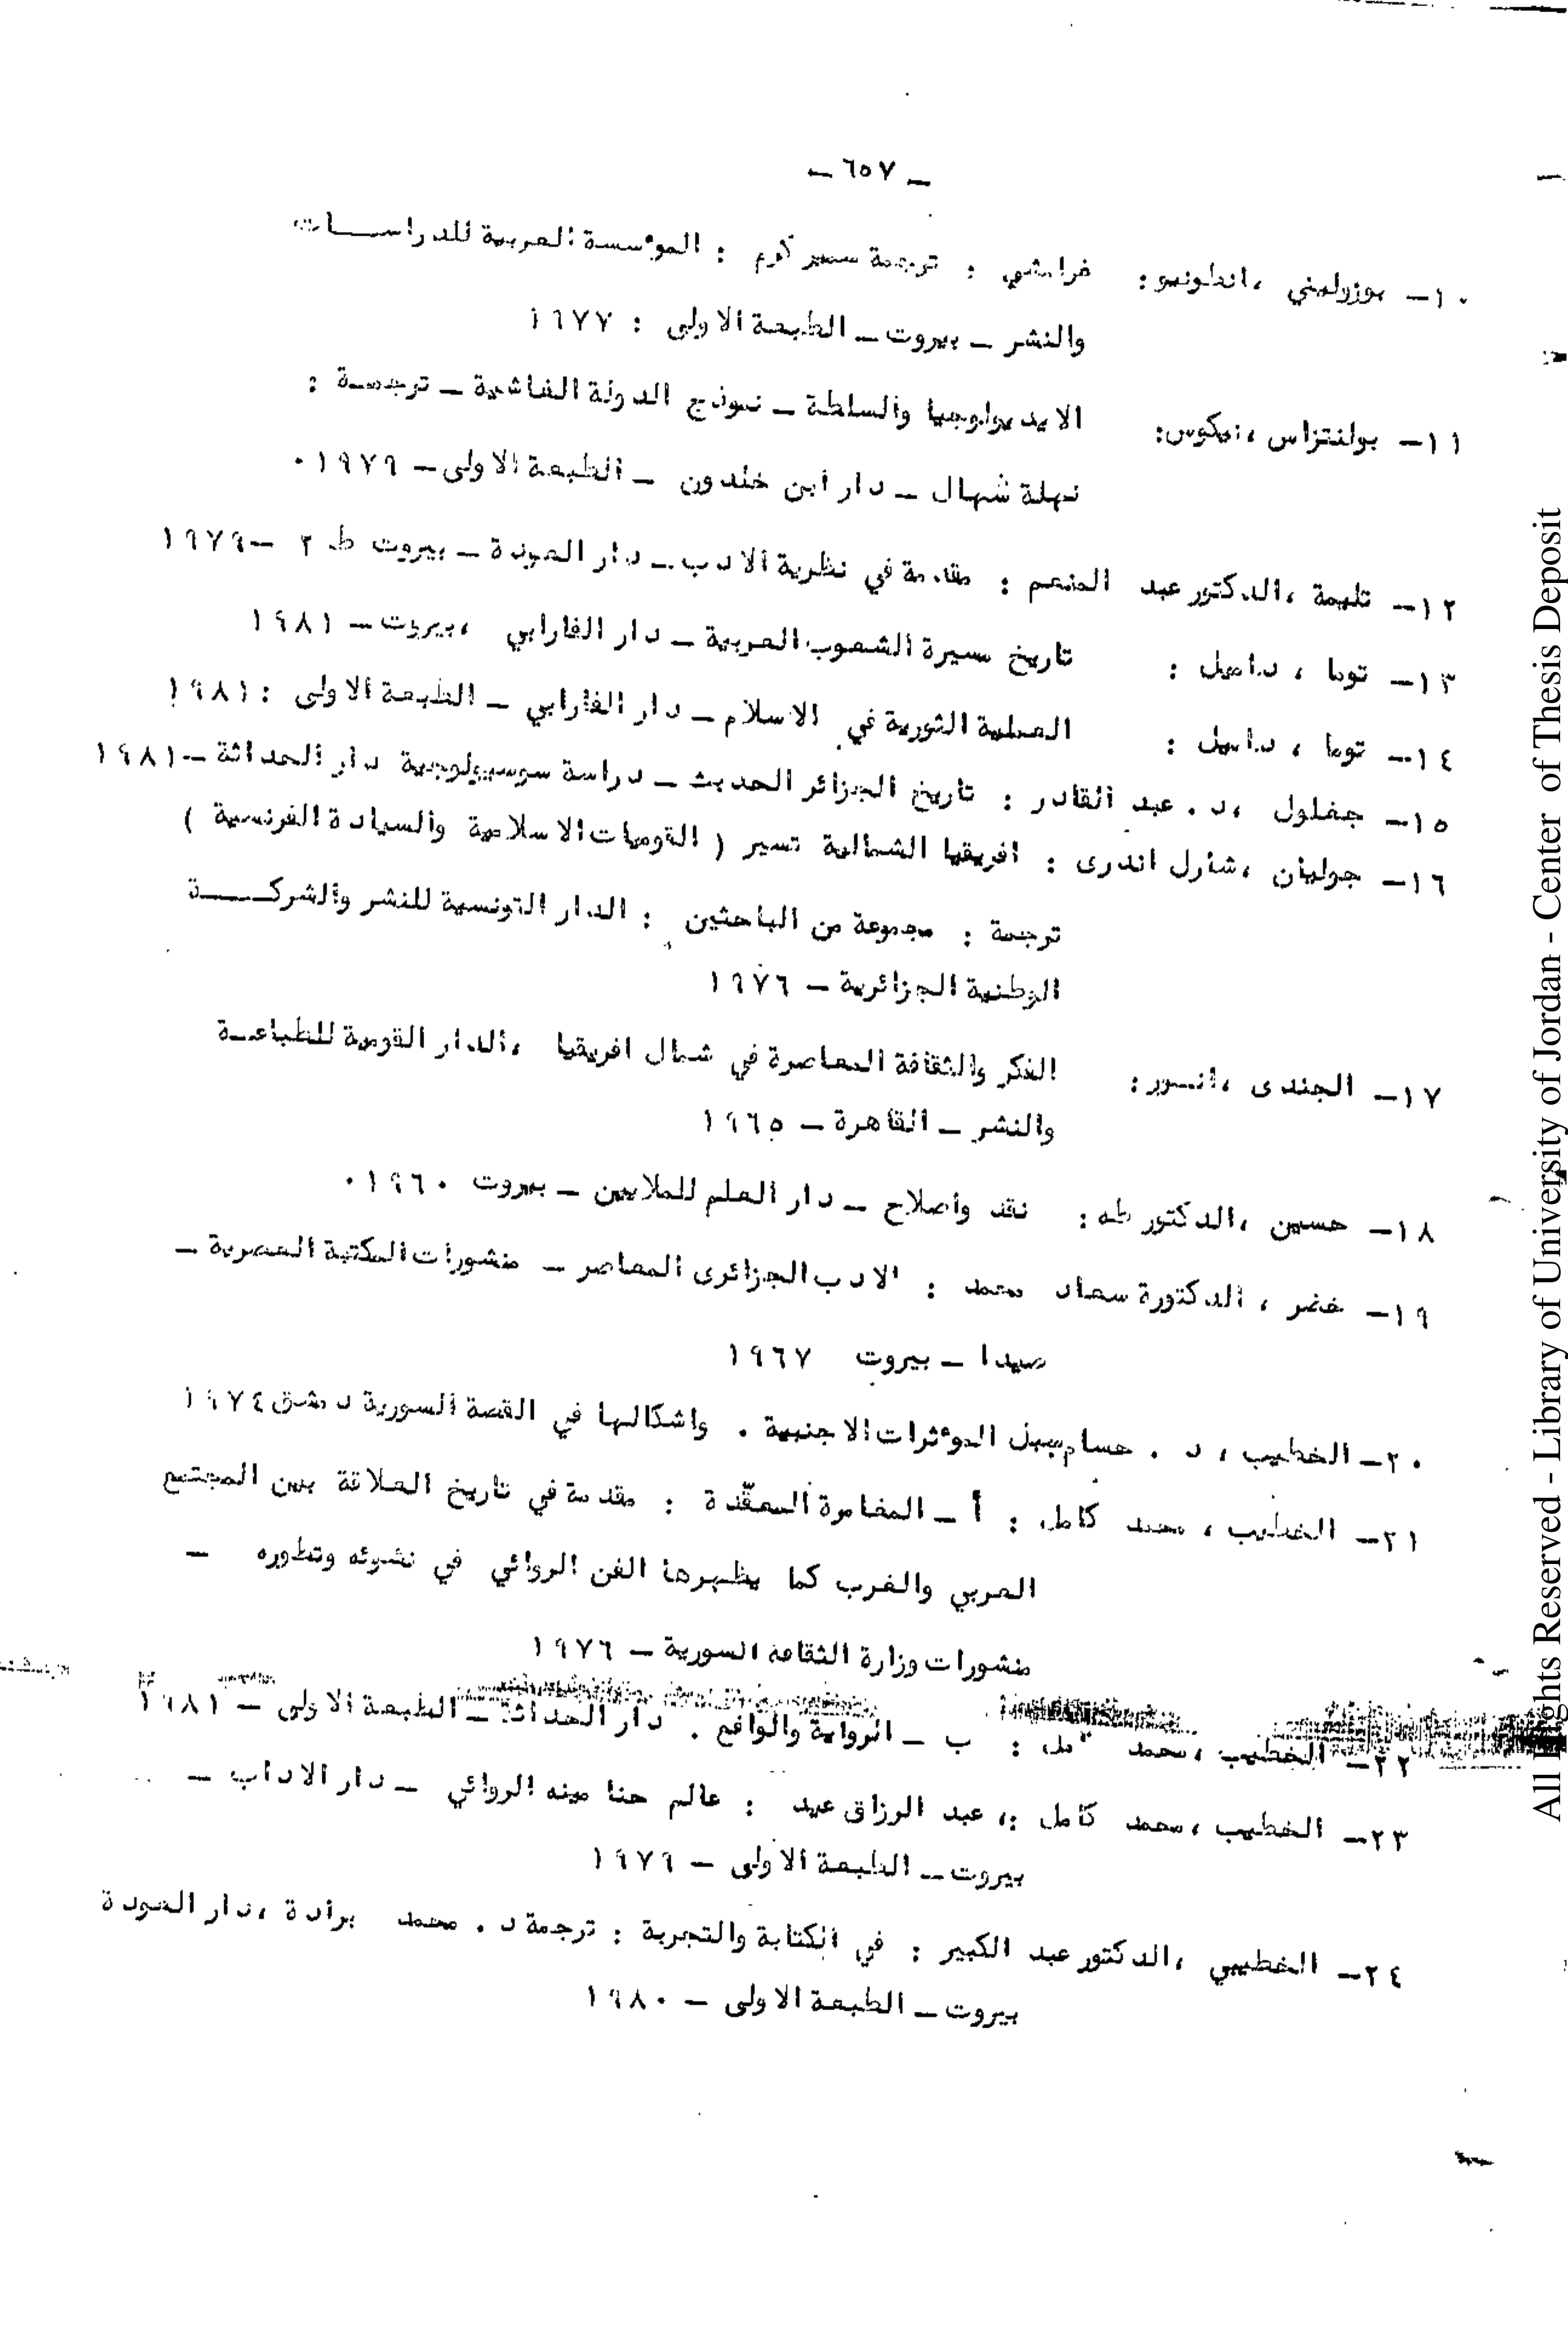 – ٦٥٧ –
١٠– بوزوليني ، انطونيو : غرامشي : ترجمة سمير كرم : المؤسسة العربية للدراســـات
والنشر – بيروت – الطبعة الاولى : ١٩٧٧
١١– بولنتزاس ، نيكوس : الايديولوجيا والسلطة – نموذج الدولة الفاشية – ترجمـة :
نهلة شهال – دار ابن خلدون – الطبعة الاولى – ١٩٧٩ ٠
١٢– تليمة ، الدكتور عبد المنعم : مقدمة في نظرية الادب – دار العودة – بيروت ط ٢ – ١٩٧٩
١٣– توما ، د. اميل : تاريخ مسيرة الشعوب العربية – دار الفارابي ، بيروت – ١٩٨١
١٤– توما ، د. اميل : العملية الثورية في الاسلام – دار الفارابي – الطبعة الاولى : ١٩٨١
١٥– جغلول ، د . عبد القادر : تاريخ الجزائر الحديث – دراسة سوسيولوجية دار الحداثة – ١٩٨١
١٦– جوليان ، شارل اندرى : افريقيا الشمالية تسير ( القوميات الاسلامية والسيادة الفرنسية )
ترجمة : مجموعة من الباحثين : الدار التونسية للنشر والشركــــة
الوطنية الجزائرية – ١٩٧٦
١٧– الجندى ، انـور : الفكر والثقافة المعاصرة في شمال افريقيا ، الدار القومية للطباعـة
والنشر – القاهرة – ١٩٦٥
١٨– حسين ، الدكتور طه : نقد واصلاح – دار العلم للملايين – بيروت ١٩٦٠ ٠
١٩– خضر ، الدكتورة سعاد محمد : الادب الجزائرى المعاصر – منشورات المكتبة العصرية –
صيدا – بيروت ١٩٦٧
٢٠– الخطيب ، د . حسام سبل المؤثرات الاجنبية . واشكالها في القصة السورية دمشق ١٩٧٤
٢١– الخطيب ، محمد كامل : أ – المغامرة المعقّدة : مقدمة في تاريخ العلاقة بين المجتمع
العربي والغرب كما يظهرها الفن الروائي في نشوئه وتطوره –
منشورات وزارة الثقافة السورية – ١٩٧٦
٢٢– الخطيب ، محمد كامل : ب – الرواية والواقع . دار الحداثة – الطبعة الاولى – ١٩٨١
٢٣– الخطيب ، محمد كامل :، عبد الرزاق عيد : عالم حنا مينه الروائي – دار الاداب –
بيروت – الطبعة الاولى – ١٩٧٩
٢٤– الخطيبي ، الدكتور عبد الكبير : في الكتابة والتجربة : ترجمة د . محمد برادة ، دار العودة
بيروت – الطبعة الاولى – ١٩٨٠
All Rights Reserved - Library of University of Jordan - Center of Thesis Deposit